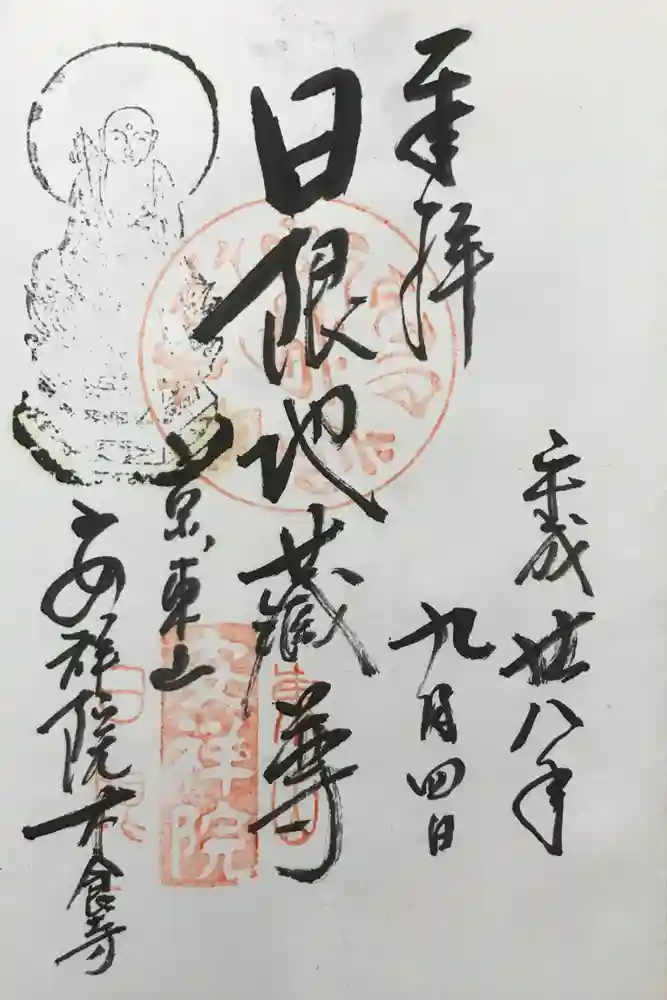 奉拝
平成廿八年
九月四日
日限地蔵尊
京東山
安祥院木食寺
安祥院